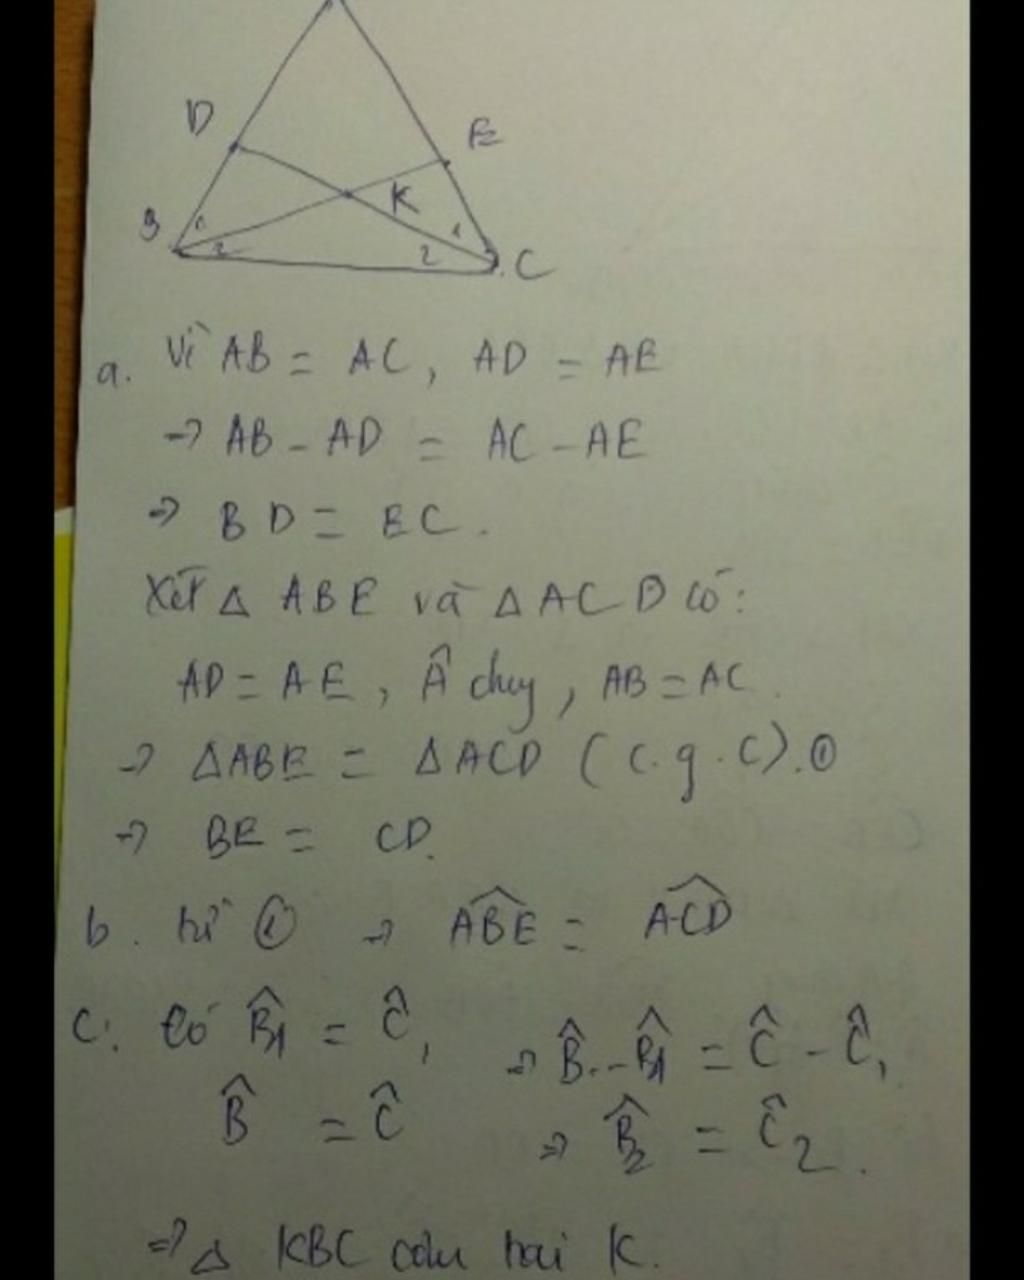 D
E
K
B
1
1
2
2
C
a. Vì AB = AC, AD = AE
→ AB - AD = AC - AE
→ BD = EC.
Xét △ ABE và △ ACD có:
AD = AE, Â chung, AB = AC.
→ △ABE = △ACD (c.g.c). ①
→ BE = CD.
b. từ ① → ABE^ = ACD^
c. Có B̂1 = Ĉ1 → B̂ - B̂1 = Ĉ - Ĉ1
B̂ = Ĉ → B̂2 = Ĉ2.
⇒ △ KBC cân tại K.